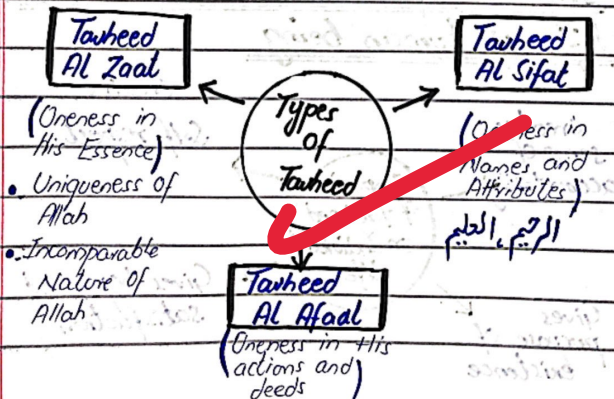 Tawheed
Al Zaat
(Oneness in
His Essence)
• Uniqueness of
Allah
• Incomparable
Nature of
Allah
Types
Of
Tawheed
Tawheed
Al Sifat
(Oneness in
Names and
Attributes)
الرحيم، العليم
Tawheed
Al Afaal
(Oneness in His
actions and
deeds)